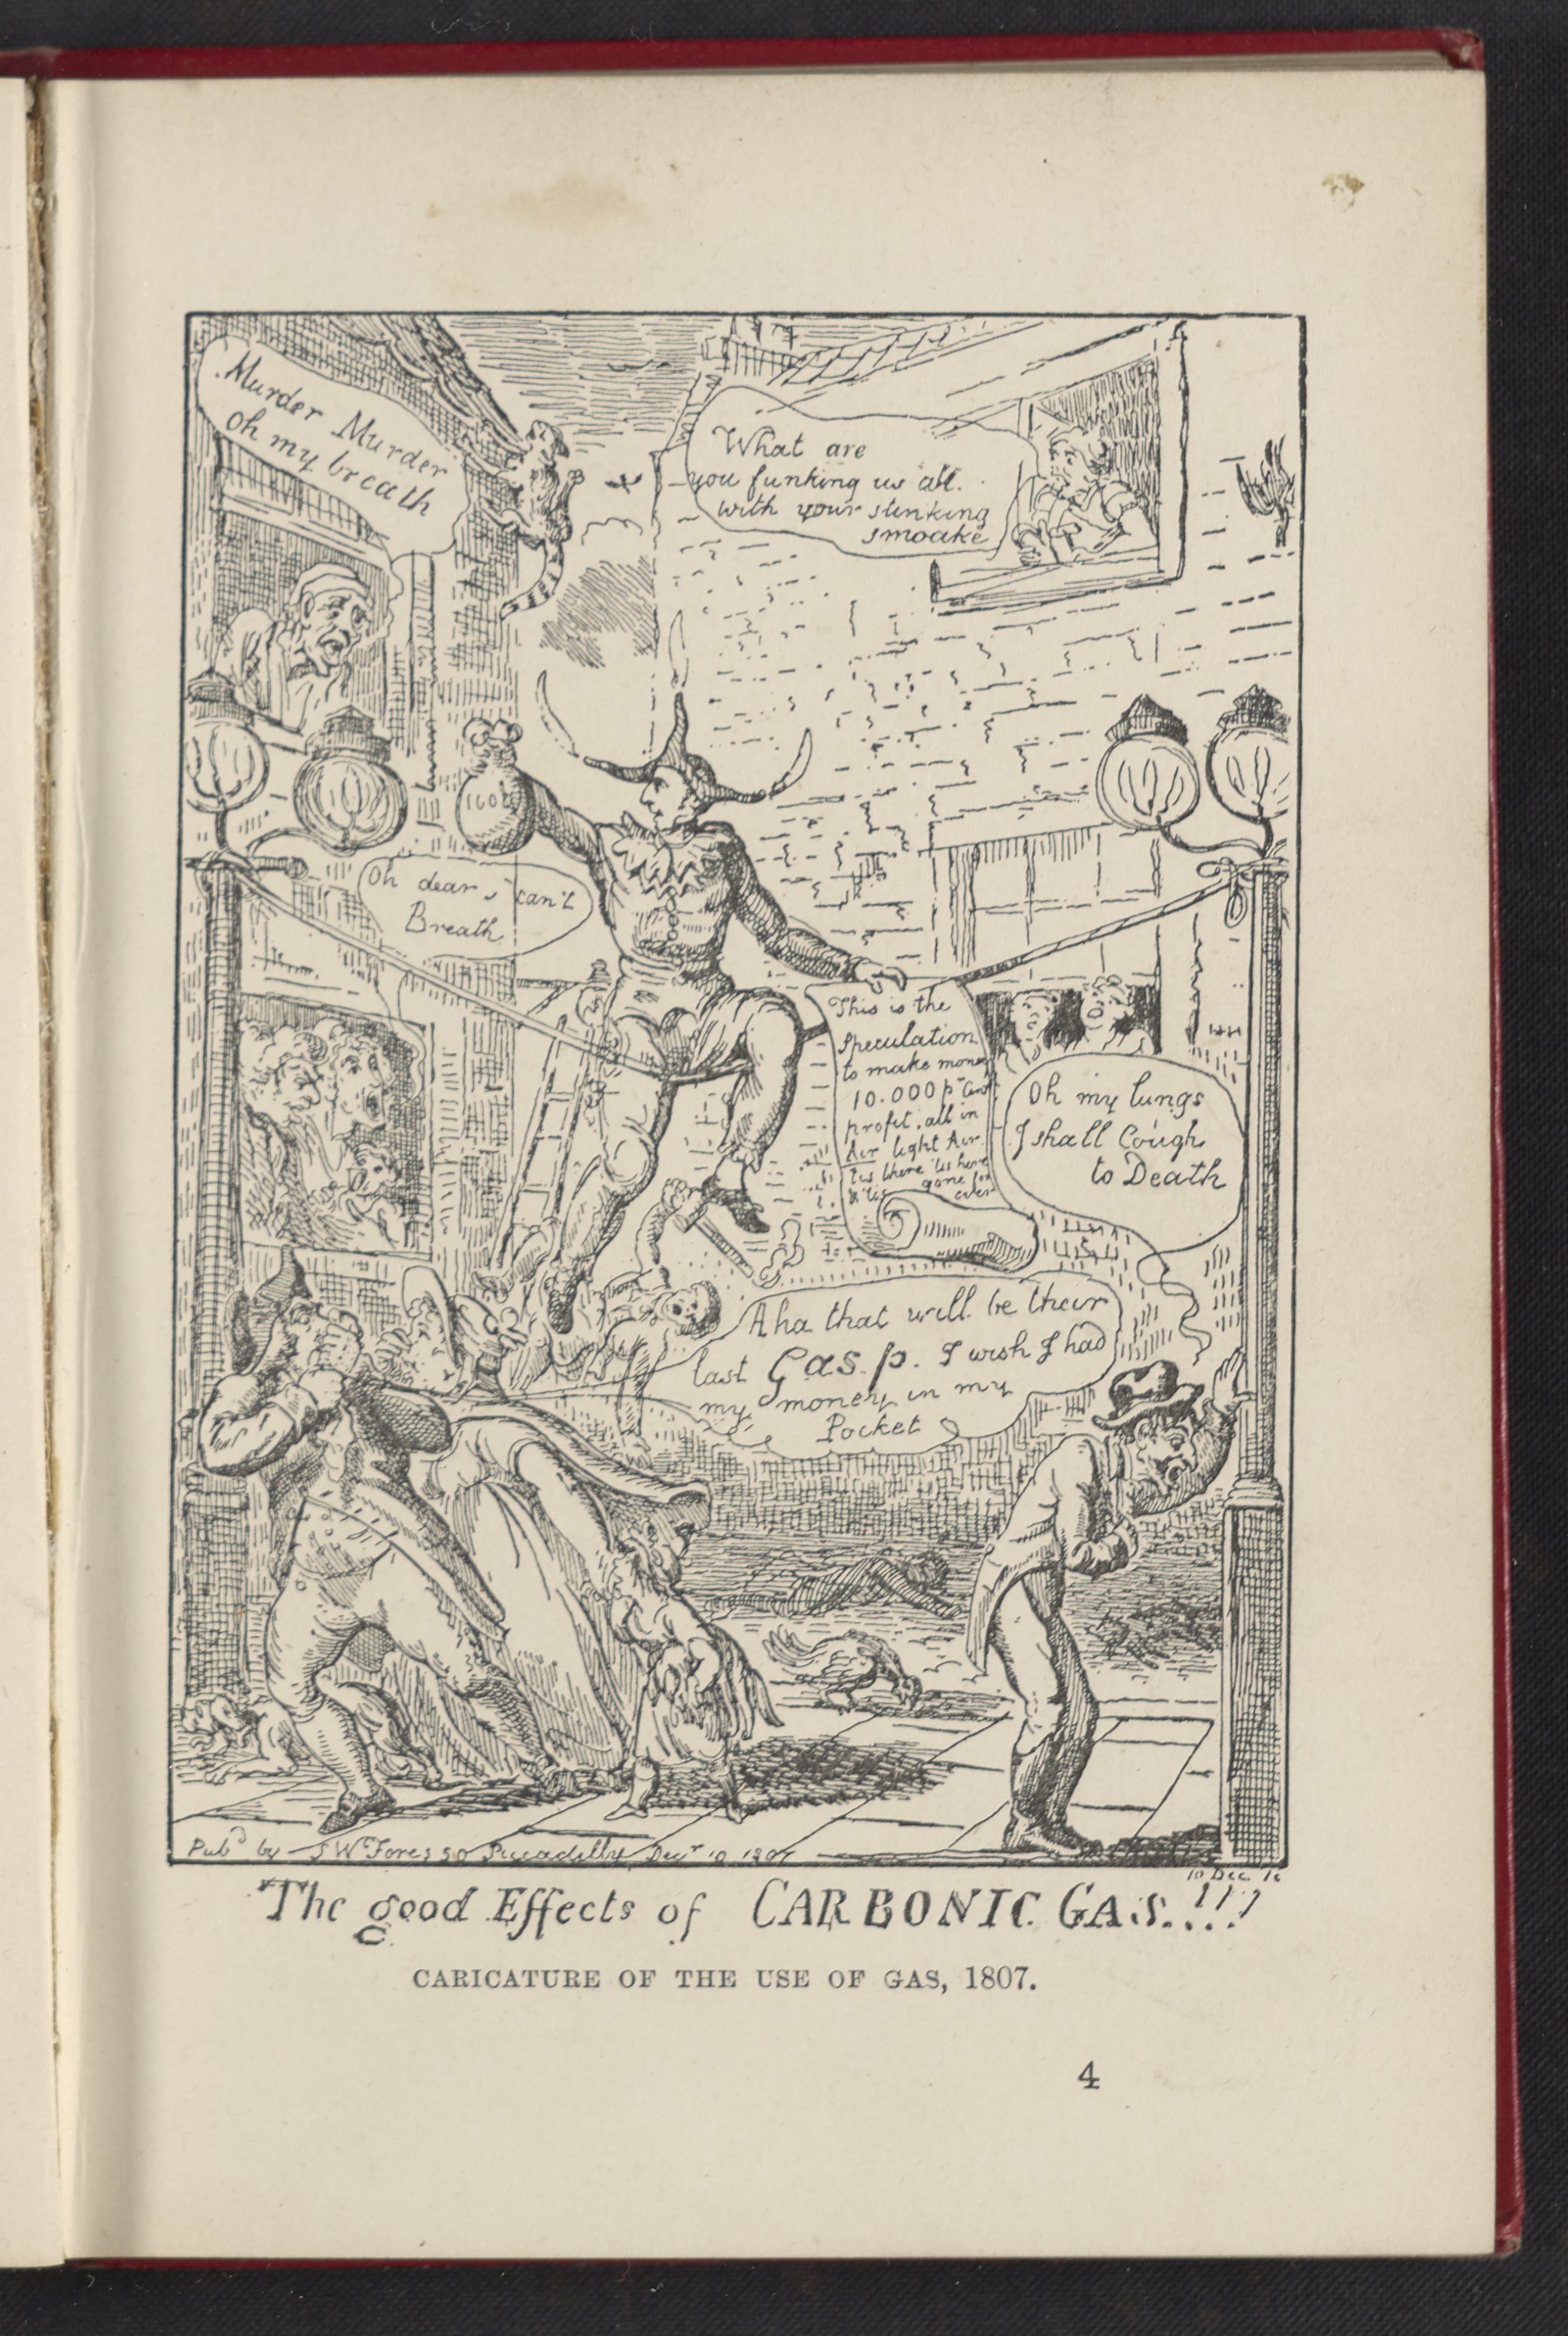 Murder Murder
oh my breath
What are
you funking us all.
with your stinking
smoake
1605
Oh dear I can't
Breath
This is the
Speculation
to make money
10.000 pr Cent
profit, all in
Air light Air
tis there tis here
& tis gone for
ever
Oh my lungs
I shall Cough
to Death
Aha that will be their
last Gas.p. I wish I had
my money in my
Pocket
Pubd by S W Fores 50 Piccadilly Decr 10 1807
10 Dec 18
The good Effects of CARBONIC GAS.!!!
CARICATURE OF THE USE OF GAS, 1807.
4